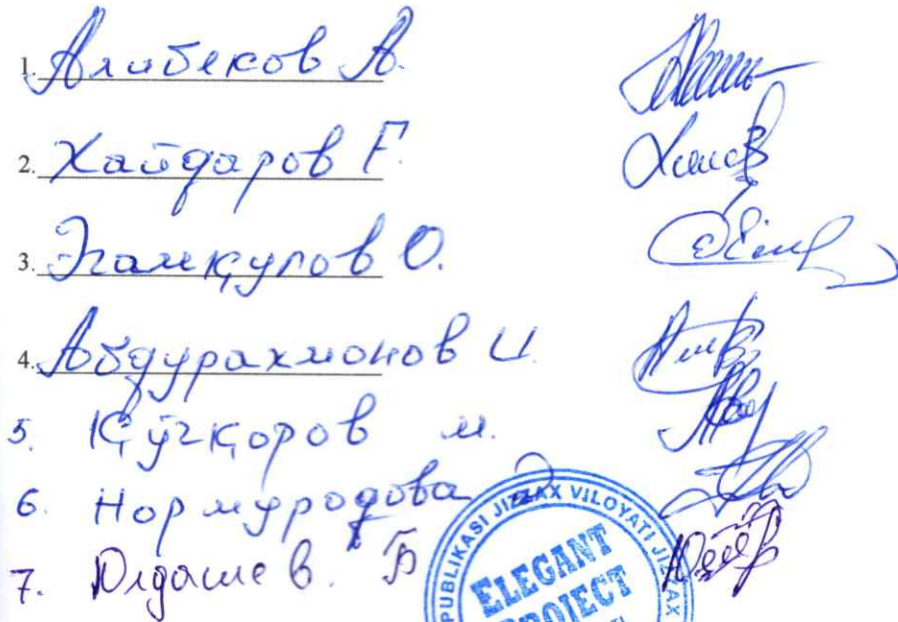 1. Алибеков А.
2. Хайдаров Ғ.
3. Эгамқулов О.
4. Абдурахмонов И.
5. Қўчқоров М.
6. Нормуродова
7. Юлдашев. Б
PUBLIKASI JIZZAX VILOYATI JIZZAX
ELEGANT
PROJECT